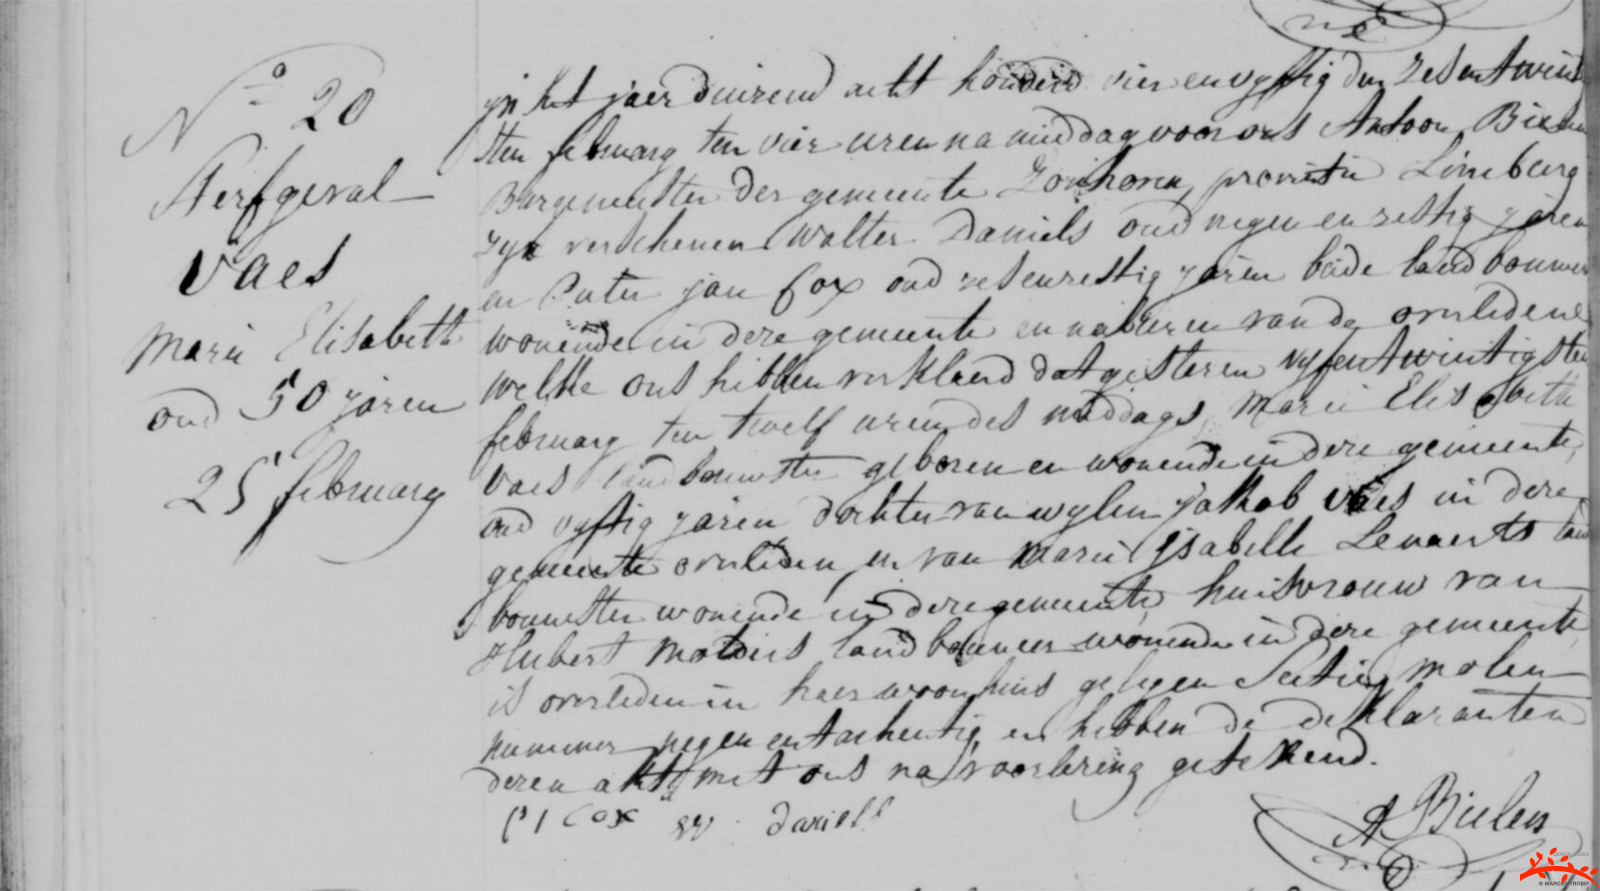 N° 20
Sterfgeval
Vaes
Marie Elisabeth
oud 50 jaren
25 february
yn het jaer duizend acht honderd vier en vyftig den zesentwin
sten february ten vier uren na middag voor ons Antoon Bielen
Burgemeester der gemeente Zonhoven, provintie Limburg
zyn verschenen Walter Daniels oud negen en zestig jaren
en Peter jan Cox oud zesenzestig jaren beide landbouwers
wonende in deze gemeente en naburen van de overledene
welke ons hebben verklaerd dat gisteren vyfentwintigsten
february ten twelf uren des middags, Marie Elisabeth
Vaes landbouwster geboren en wonende in deze gemeente,
oud vyftig jaren dochter van wylen Jakob Vaes in deze
gemeente overleden, en van Marie Ysabelle Lenaerts land
bouwster wonende in deze gemeente, huisvrouw van
Hubert landbouwer wonende in deze gemeente
is overleden in haer woonhuis gelegen Sectie molen
nummer negen entachentig en hebben de deklaranten
dezen akt met ons na voorlezing getekend.
P J Cox W. Daniels
A Bielen
© MARCEL TROMP